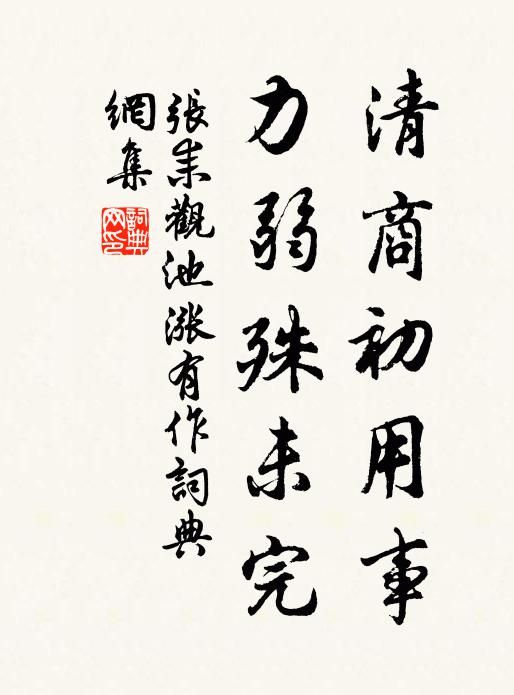 清商初用事
力弱殊未完
張耒觀池漲有作詞典
網集
詞典
网印